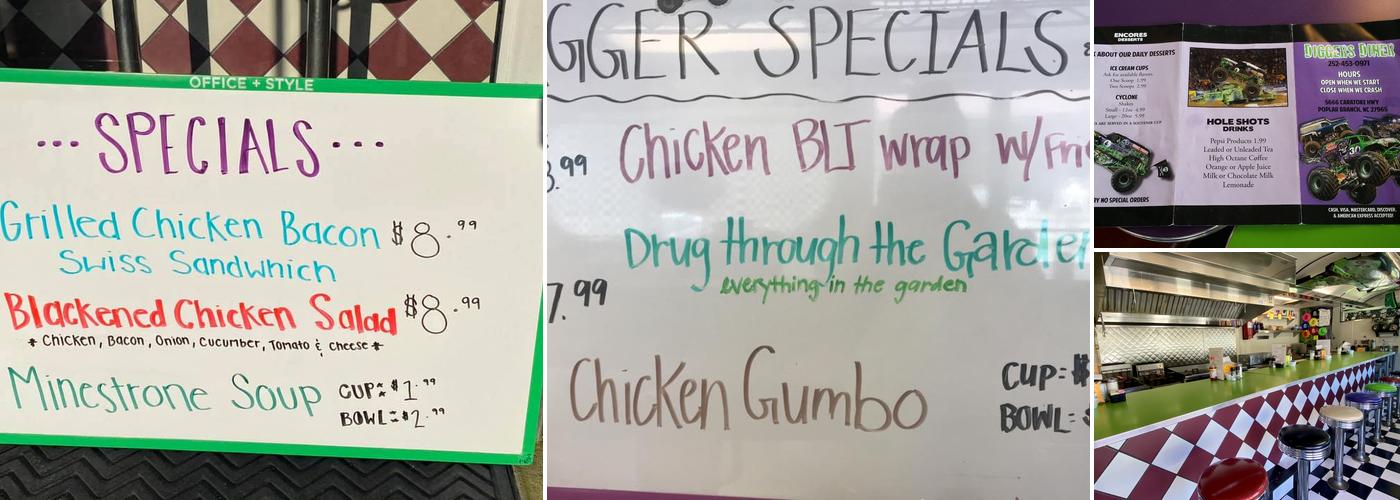 OFFICE + STYLE
...SPECIALS...
Grilled Chicken Bacon $8.99
Swiss Sandwhich
Blackened Chicken Salad $8.99
* Chicken, Bacon, Onion, Cucumber, Tomato & Cheese *
Minestrone Soup CUP: $1.99
BOWL: $2.99
GGER SPECIALS
.99 Chicken BLT wrap w/Fri
Drug through the Garden
everything in the garden
7.99
Chicken Gumbo
CUP: $
BOWL:
ENCORES
DESSERTS
ABOUT OUR DAILY DESSERTS
ICE CREAM CUPS
Ask for available flavors
One Scoop 1.99
Two Scoops 2.99
CYCLONE
Shakes
Small - 12oz 4.99
Large - 20oz 5.99
ARE SERVED IN A SOUVENIR CUP
RY NO SPECIAL ORDERS
HOLE SHOTS
DRINKS
Pepsi Products 1.99
Leaded or Unleaded Tea
High Octane Coffee
Orange or Apple Juice
Milk or Chocolate Milk
Lemonade
DIGGERS DINER
252-453-0971
HOURS
OPEN WHEN WE START
CLOSE WHEN WE CRASH
5666 CARATOKE HWY
POPLAR BRANCH, NC 27965
30
CASH, VISA, MASTERCARD, DISCOVER,
& AMERICAN EXPRESS ACCEPTED!